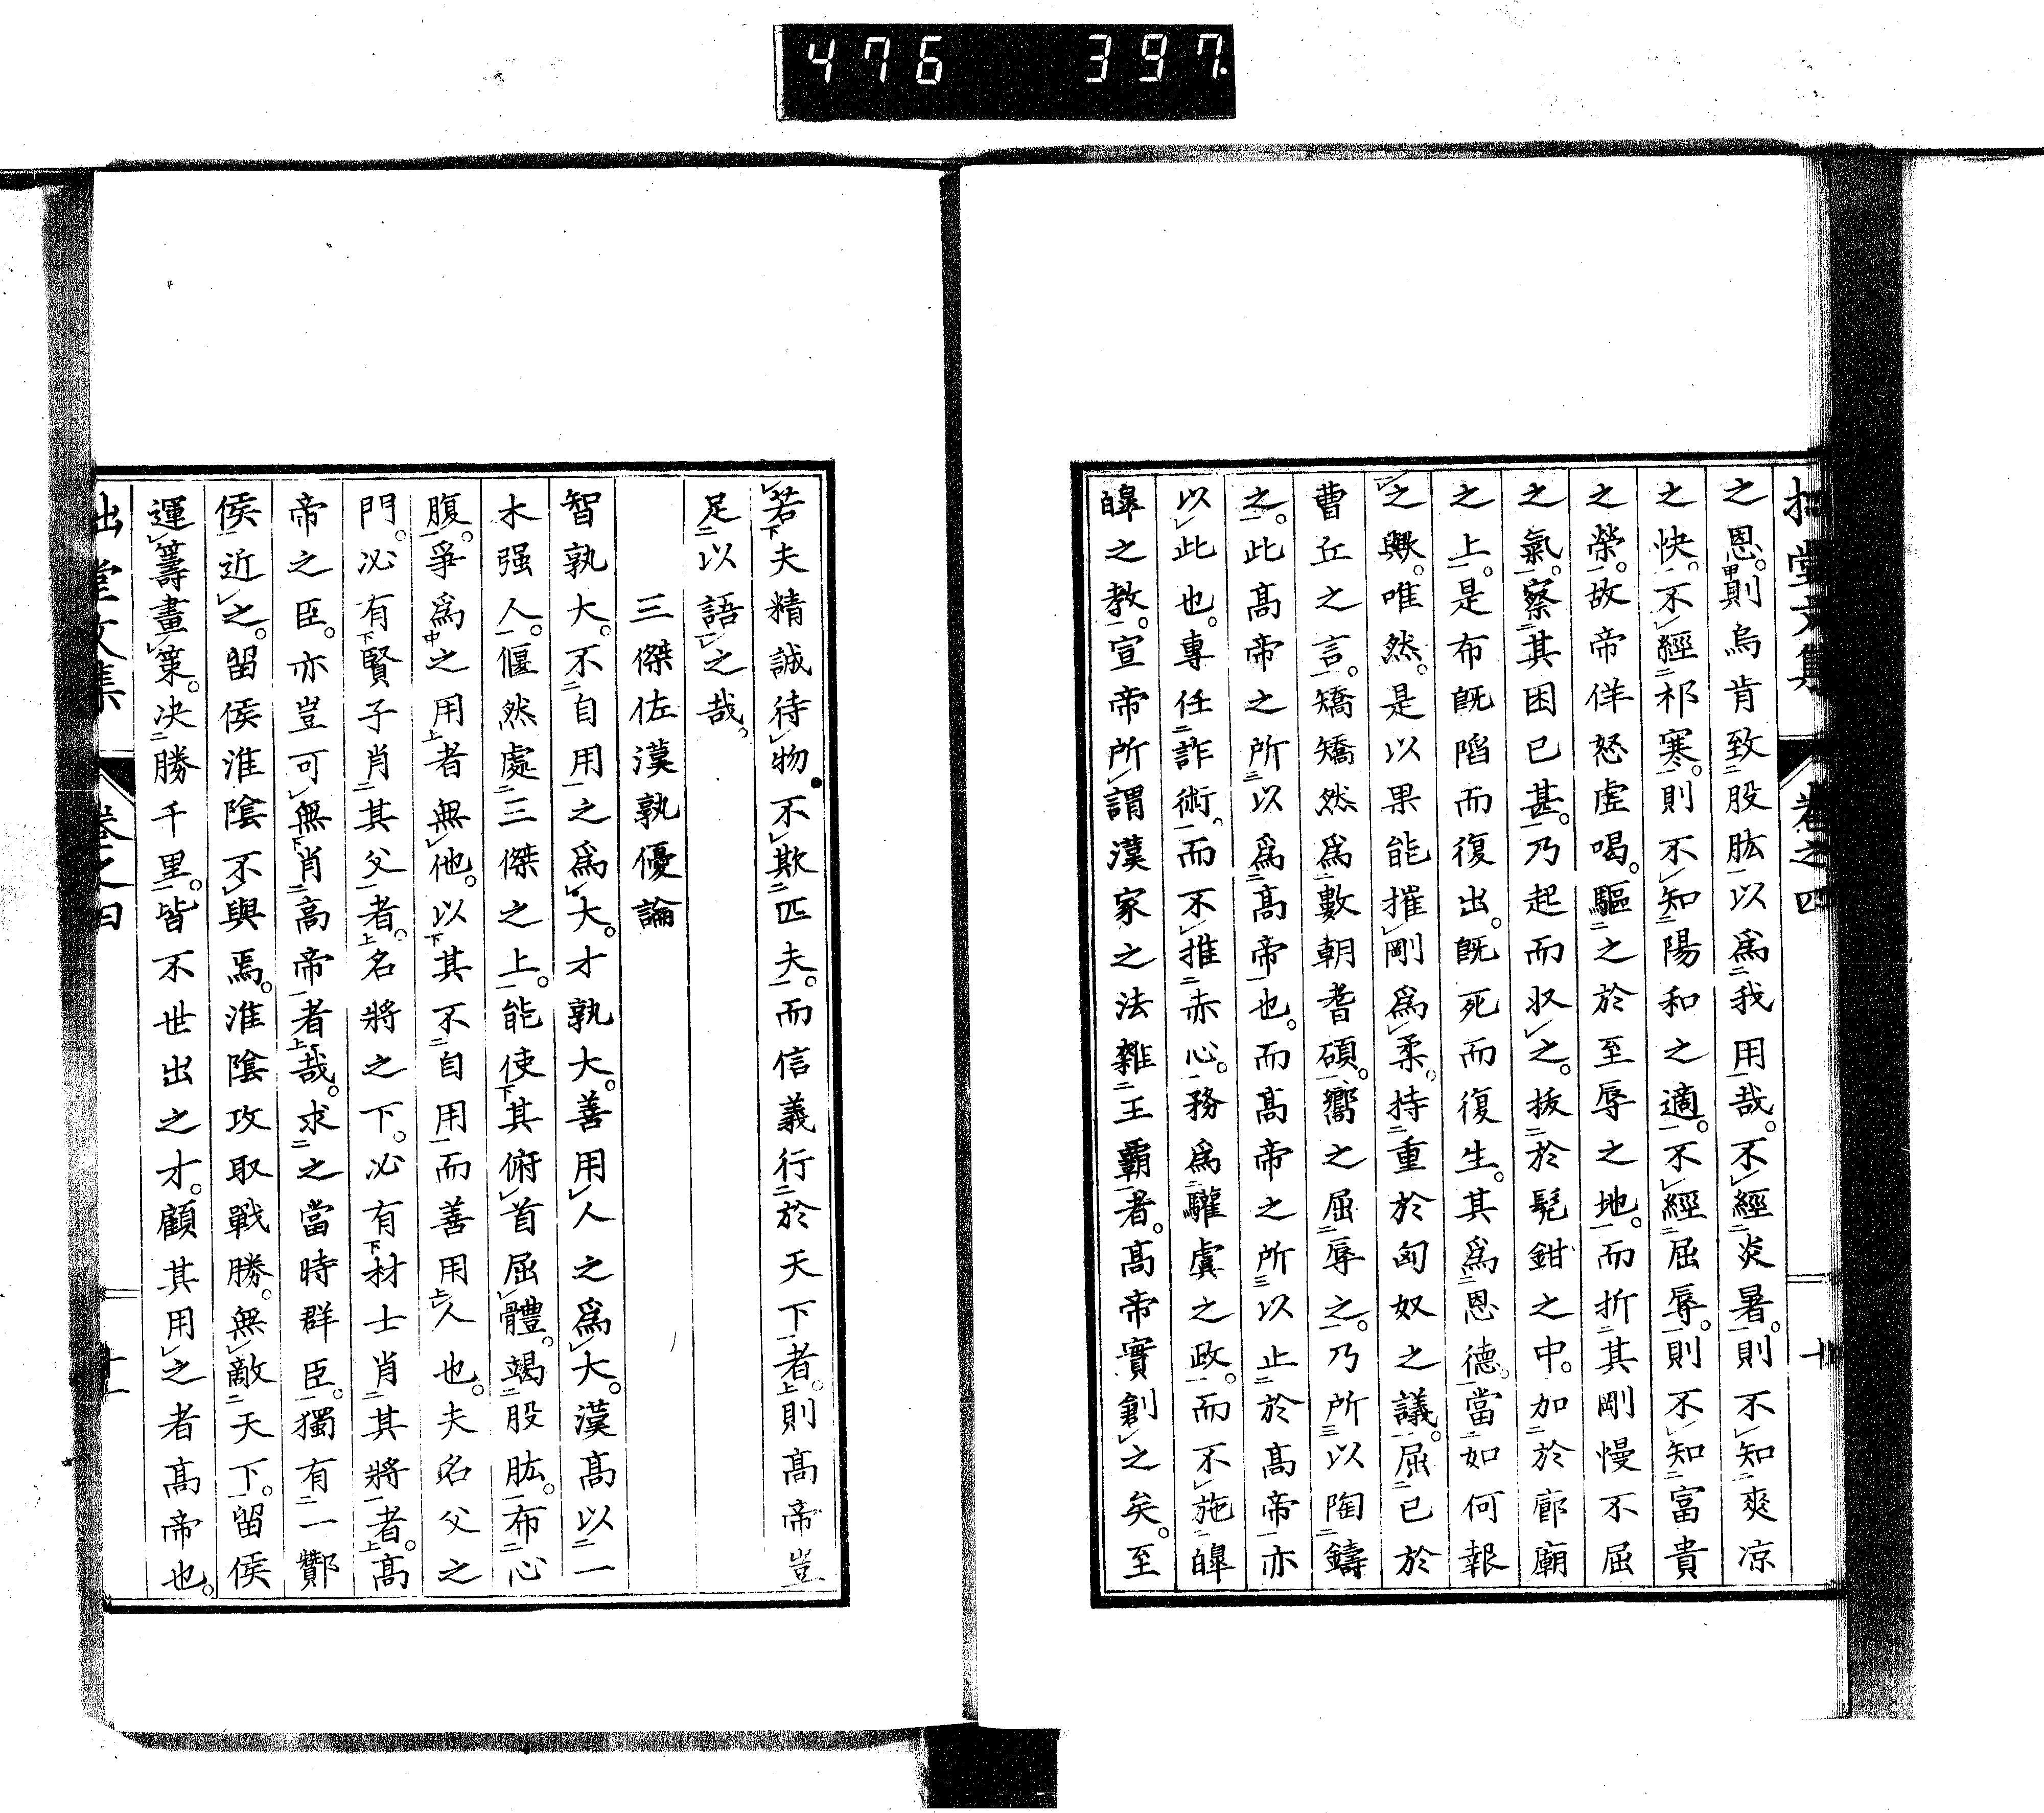 476 397
拙堂文集 卷之四 十
之恩。則烏肯致股肱以爲我用哉。不經炎暑。則不知爽凉
之快。不經祁寒。則不知陽和之適。不經屈辱。則不知富貴
之榮。故帝佯怒虛喝。驅之於至辱之地。而折其剛慢不屈
之氣。察其困已甚。乃起而收之。拔於髡鉗之中。加於廊廟
之上。是布既陷而復出。既死而復生。其爲恩德。當如何報
之歟。唯然。是以果能摧剛爲柔。持重於匈奴之議。屈已於
曹丘之言。矯矯然爲數朝耆碩。嚮之屈辱之。乃所以陶鑄
之。此高帝之所以爲高帝也。而高帝之所以止於高帝亦
以此也。專任詐術。而不推赤心。務爲驩虞之政。而不施皥
皥之教。宣帝所謂漢家之法雜王霸者。高帝實創之矣。至
若夫精誠待物。不欺匹夫。而信義行於天下者。則高帝豈
足以語之哉。
三傑佐漢孰優論
智孰大。不自用之爲大。才孰大。善用人之爲大。漢高以一
木强人。偃然處三傑之上。能使其俯首屈體。竭股肱。布心
腹。爭爲之用者無他。以其不自用而善用人也。夫名父之
門。必有賢子肖其父者。名將之下。必有材士肖其將者。高
帝之臣。亦豈可無肖高帝者哉。求之當時群臣。獨有一酇
侯近之。留侯淮陰不與焉。淮陰攻取戰勝。無敵天下。留侯
運籌畫策。决勝千里。皆不世出之才。顧其用之者高帝也。
拙堂文集 卷之四